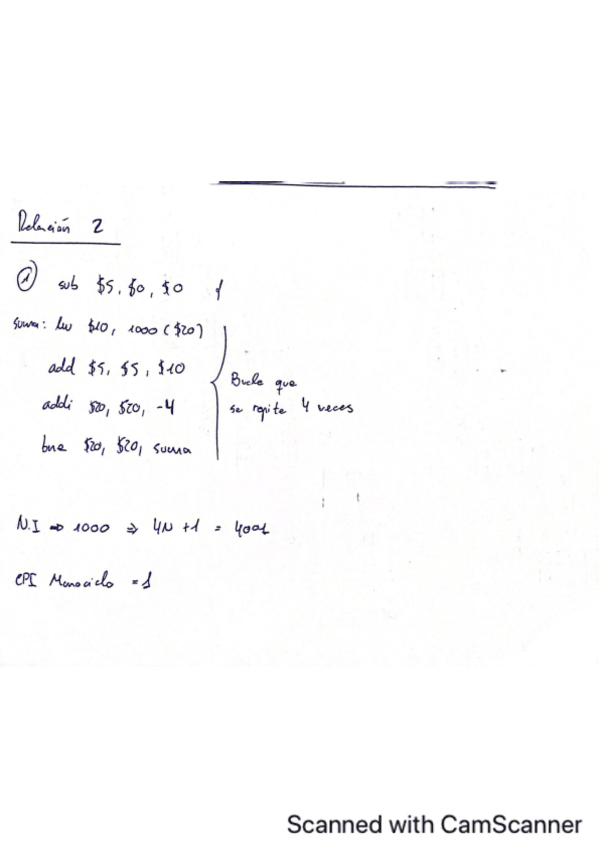 Relación 2
① sub $5, $0, $0 1
suma: lw $10, 1000 ($20)
add $5, $5, $10
addi $20, $20, -4
bne $20, $20, suma
Bucle que
se repite 4 veces
N.I ⇒ 1000 ⇒ 4N + 1 = 4001
CPI Monociclo = 1
Scanned with CamScanner